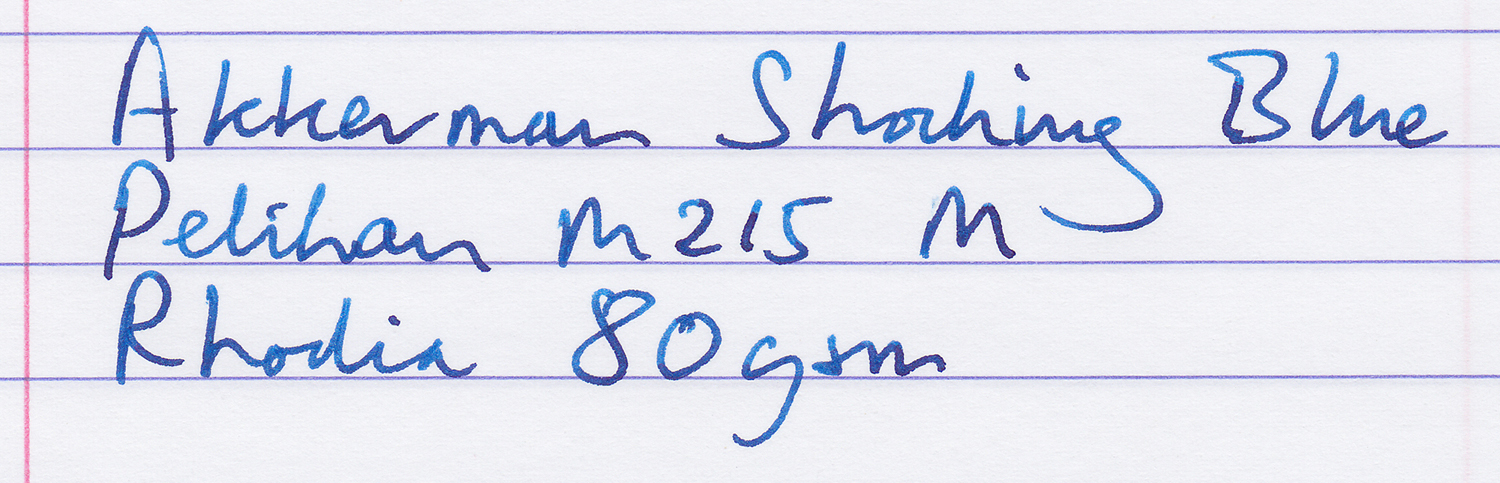 Akkerman Shocking Blue
Pelikan M215 M
Rhodia 80gsm